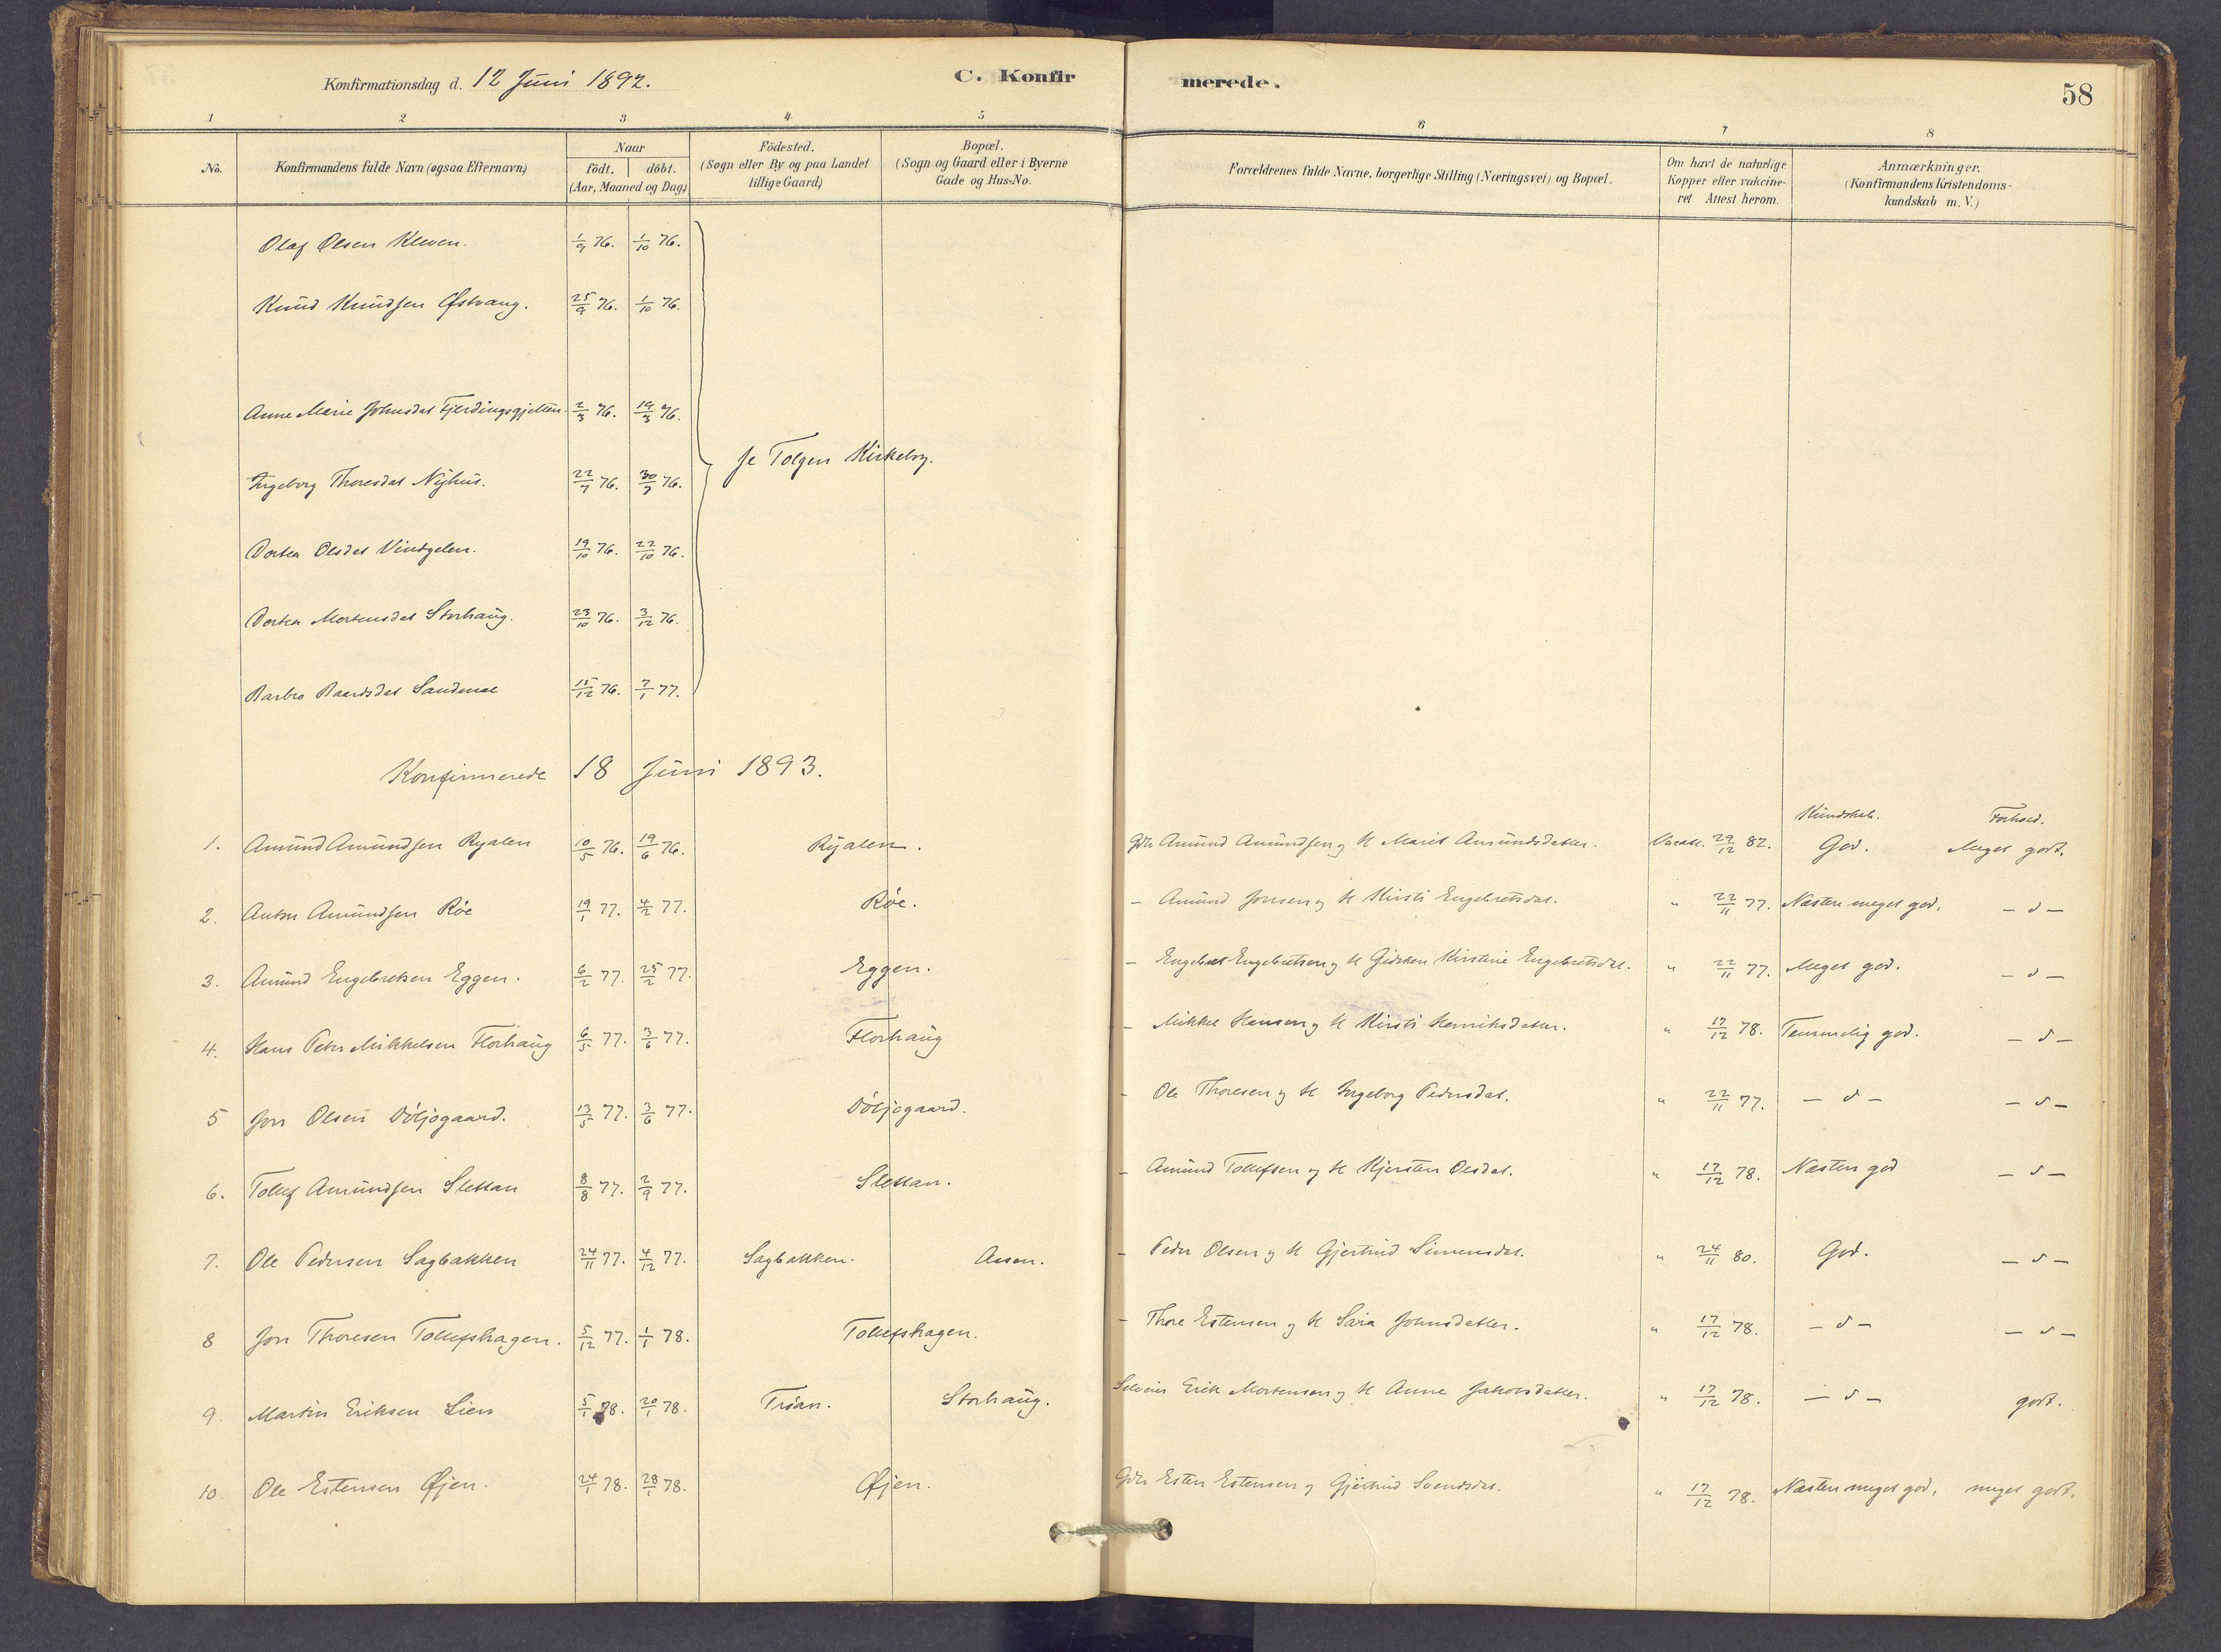 Konfirmationsdag d. 12 Juni 1892.
C. Konfirmerede.
58
1 2 3 4 5 6 7 8
No.
Konfirmandens fulde Navn (ogsaa Efternavn)
Naar
födt. döbt.
(Aar, Maaned og Dag)
Födested.
(Sogn eller By og paa Landet
tillige Gaard)
Bopæl.
(Sogn og Gaard eller i Byerne
Gade og Hus-No.
Forældrenes fulde Navne, borgerlige Stilling (Næringsvei) og Bopæl.
Om havt de naturlige
Kopper eller vakcine-
ret Attest herom.
Anmærkninger.
(Konfirmandens Kristendoms-
kundskab m. V.)
Olaf Olsen Kleven. 1/9 76. 1/10 76.
Knud Knudsen Østvang. 25/9 76. 1/10 76.
Anne Marie Johnsdat Fjerdingsgjelten. 2/3 76. 19/3 76.
Se Tolgen Kirkebog.
Ingeborg Thoresdat Nyhus. 22/7 76. 30/7 76.
Dortea Olsdat Vintgelen. 19/10 76. 22/10 76.
Dortea Mortensdat Storhaug. 23/10 76. 3/12 76.
Barbro Baardsdat Sandmæl 15/12 76. 7/1 77.
Konfirmerede 18 Juni 1893.
Kundskab. Forhold.
1. Amund Amundsen Ryalen 10/5 76. 19/6 76. Ryalen. Gdr Amund Amundsen og H Marit Amundsdatter. Vacat. 29/12 82. God. Meget godt.
2. Anton Amundsen Röe 19/1 77. 4/2 77. Röe. – Amund Jonsen og H Kirsti Engebretsdat. " 22/11 77. Næsten meget god. – d –
3. Amund Engebretsen Eggen. 6/2 77. 25/2 77. Eggen. – Engebret Engebretsen og H Gidsken Kirstine Engebretsdat. " 22/11 77. Meget god. – d –
4. Hans Peter Mikkelsen Florhaug 6/5 77. 3/6 77. Florhaug – Mikkel Hansen og H Kirsti Henriksdatter. " 17/12 78. Temmelig god. – d –
5 Jon Olsen Döljogaard. 13/5 77. 3/6 77. Döljogaard. – Ole Thoresen og H Ingeborg Pedersdat. " 22/11 77. – d – – d –
6. Tollef Amundsen Slettan 8/8 77. 2/9 77. Slettan. – Amund Tollefsen og H Kjersten Olsdat. " 17/12 78. Næsten god – d –
7. Ole Pedersen Sagbakken 24/11 77. 4/12 77. Sagbakken. Aasen. – Peder Olsen og H Gjertrud Simensdat. " 24/11 80. God. – d –
8 Jon Thoresen Tollefshagen. 5/12 77. 1/1 78. Tollefshagen. – Thore Estensen og H Sara Johnsdatter. " 17/12 78. – d – – d –
9. Martin Eriksen Lien 5/1 78. 20/1 78. Tröan. Storhaug. Selveier Erik Mortensen og H Anne Jakobsdatter. " 17/12 78. – d – godt.
10. Ole Estensen Øjen. 24/1 78. 28/1 78. Øjen. Gdr Esten Estensen og Gjertrud Svendsdat. " 17/12 78. Næsten meget god, meget godt.